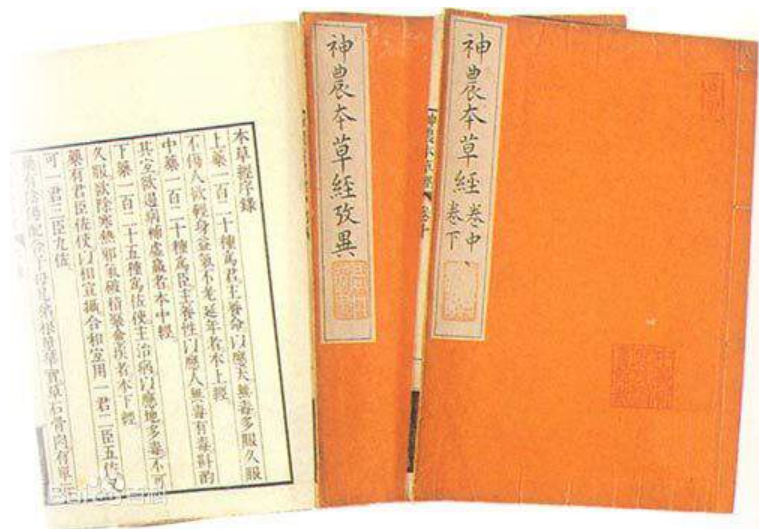 神農本草經 卷中、卷下
神農本草經攷異
本草經序錄
上藥一百二十種爲君主養命以應天無毒多服久服
不傷人欲輕身益氣不老延年者本上經
中藥一百二十種爲臣主養性以應人無毒有毒斟酌
其宜欲遏病補虛羸者本中經
下藥一百二十五種爲佐使主治病以應地多毒不可
久服欲除寒熱邪氣破積聚愈疾者本下經
藥有君臣佐使以相宣攝合和宜用一君二臣五佐又
可一君三臣九佐
藥有陰陽配合子母兄弟根莖華實草石骨肉有單
Baidu百科